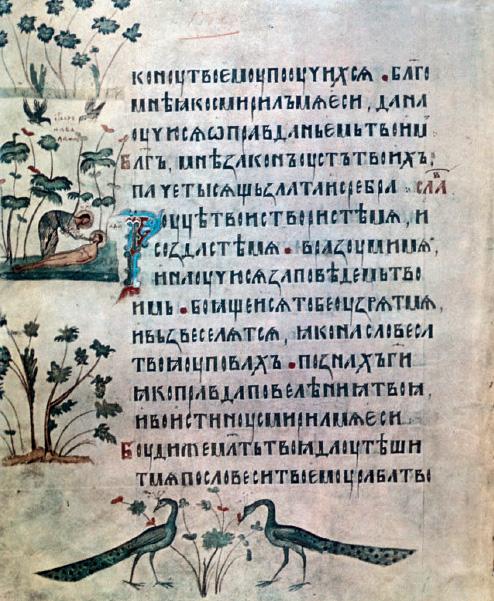 КОНОУТВОЕМОУПООУЧИХСѦ . БЛГО
МНѢꙖКОСМИРИЛЪМѦЕСИ , ДАНА
ОУЧИСѦѠПРАВДАНЬЕМЬТВОИМ
БЛГЪ, МНѢЗАКОНЪОУСТЪТВОИХЪ,
ПАЧЕТЫСѦЩЬЗЛАТАИСРЕБРА СЛА
РОУЦѢТВОИСТВОРИСТЕМѦ, И
СОЗДАСТЕМѦ . ВРАЗОУМИМѦ,
ИНАОУЧИСѦЗАПОВѢДЕМЬТВО
ИМЬ . БОꙖЩЕИСѦТОБЕОУЗРѦТМѦ,
ИВЬЗВЕСЕЛѦТСѦ, ꙖКОНАСЛОВЕСА
ТВОꙖОУПОВАХЪ . ПОЗНАХЪГИ
ꙖКОПРАВДАПОВЕЛѢНИꙖТВОꙖ,
ИВОИСТИНОУСМИРИЛМѦЕСИ
БОУДИЖЕМЛТЬТВОꙖДАОУТѢШИ
ТМѦПОСЛОВЕСИТВОЕМОУРАБАТВО